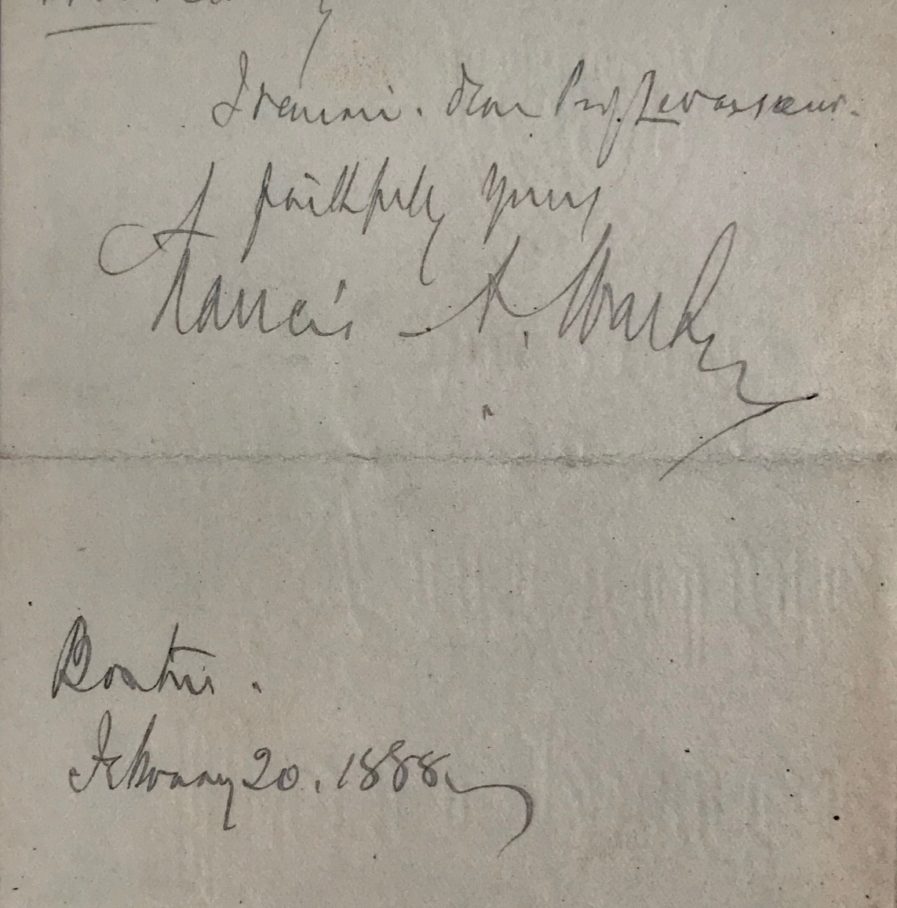 I remain. dear Prof Levasseur.
faithfully yours
Francis A. Walker
Boston.
February 20. 1888